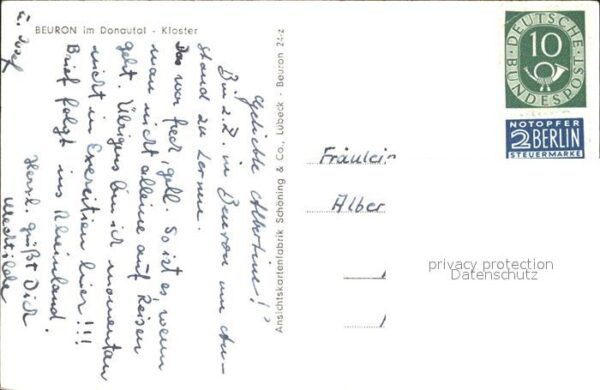 BEURON im Donautal - Kloster
Geliebte Albertine!
Bin z. Z. in Beuron um An-
stand zu lernen.
Das war frech, gell. So ist es, wenn
man nicht alleine auf Reisen
geht. Übrigens bin ich momentan
nicht in Exerzitien hier!!!
Brief folgt ins Rheinland!
Herzl. grüßt Dich
Mechtilde
Josef
Ansichtskartenfabrik Schöning & Co., Lübeck · Beuron 24z
DEUTSCHE
BUNDESPOST
10
NOTOPFER
2 BERLIN
STEUERMARKE
Fräulein
Alber
privacy protection
Datenschutz